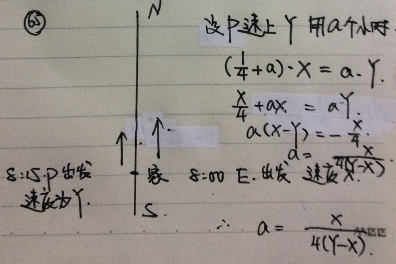 65
N
设P追上Y用a个小时.
(1/4+a)·X=a·Y.
X/4+aX=aY.
a(X-Y)=-X/4.
a=X/4(Y-X)
8:15 P出发
速度为Y.
家 8:00 E.出发 速度X.
S.
∴ a=X/4(Y-X).